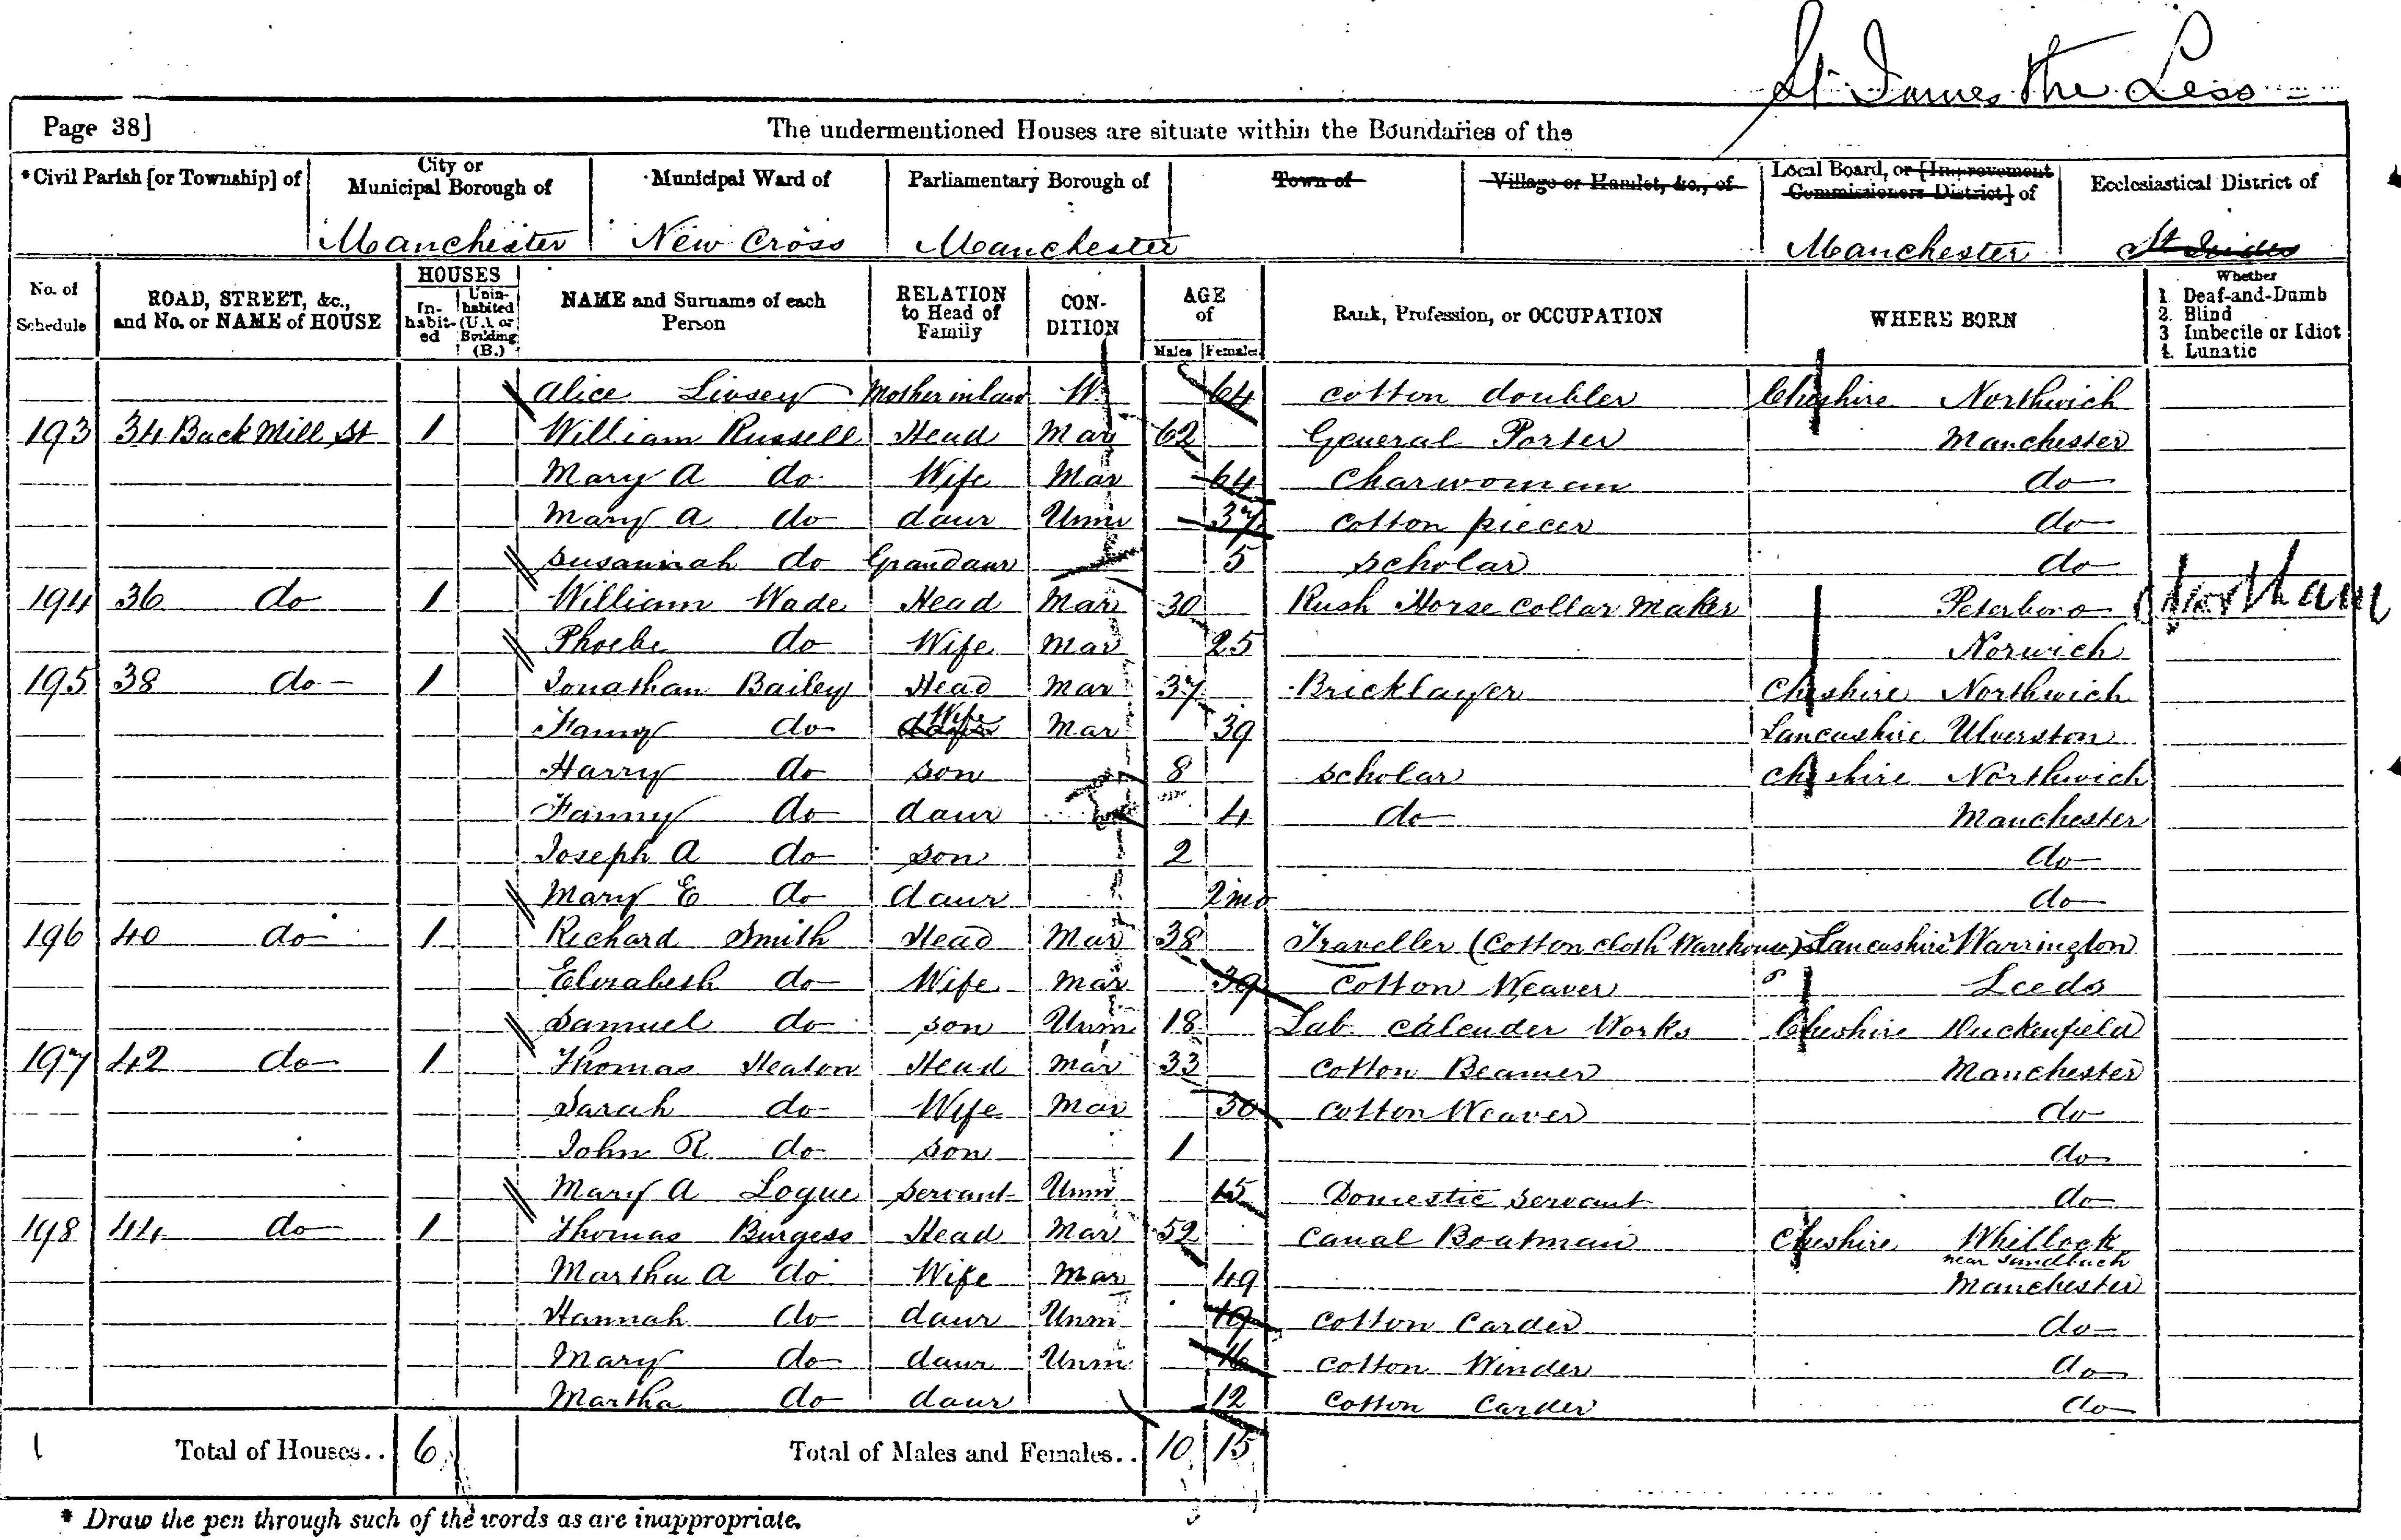 St James the Less
Page 38]
The undermentioned Houses are situate within the Boundaries of the
*Civil Parish [or Township] of City or Municipal Borough of Municipal Ward of Parliamentary Borough of Town of Village or Hamlet, &c., of Local Board, or [Improvement Commissioners District] of Ecclesiastical District of
Manchester New Cross Manchester Manchester St Judes
No. of Schedule ROAD, STREET, &c., and No. or NAME of HOUSE HOUSES Inhabited Uninhabited (U.), or Building (B.) NAME and Surname of each Person RELATION to Head of Family CONDITION AGE of Males Females Rank, Profession, or OCCUPATION WHERE BORN Whether 1. Deaf-and-Dumb 2. Blind 3 Imbecile or Idiot 4. Lunatic
Alice Livsey Mother in law W 64 Cotton doubler Cheshire Northwich
193 34 Back Mill St 1 William Russell Head Mar 62 General Porter Manchester
Mary A do Wife Mar 64 Charwoman do
Mary A do daur Unm 37 Cotton piecer do
Susannah do Grandaur 5 Scholar do
194 36 do 1 William Wade Head Mar 30 Rush Horse Collar Maker Peterboro Northam
Phoebe do Wife Mar 25 Norwich
195 38 do 1 Jonathan Bailey Head Mar 37 Bricklayer Cheshire Northwich
Fanny do Wife Mar 39 Lancashire Ulverston
Harry do son 8 Scholar Cheshire Northwich
Fanny do daur 4 do Manchester
Joseph A do son 2 do
Mary E do daur 2 mo do
196 40 do 1 Richard Smith Head Mar 38 Traveller (Cotton cloth Warehouse) Lancashire Warrington
Elizabeth do Wife Mar 39 Cotton Weaver Leeds
Samuel do son Unm 18 Lab Calender Works Cheshire Duckenfield
197 42 do 1 Thomas Heaton Head Mar 33 Cotton Beamer Manchester
Sarah do Wife Mar 30 Cotton Weaver do
John R do son 1 do
Mary A Logue Servant Unm 15 Domestic Servant do
198 44 do 1 Thomas Burgess Head Mar 52 Canal Boatman Cheshire Whillock near Sandbach
Martha A do Wife Mar 49 Manchester
Hannah do daur Unm 19 Cotton Carder do
Mary do daur Unm 16 Cotton Winder do
Martha do daur 12 Cotton Carder do
1 Total of Houses.. 6 Total of Males and Females.. 10 15
* Draw the pen through such of the words as are inappropriate.